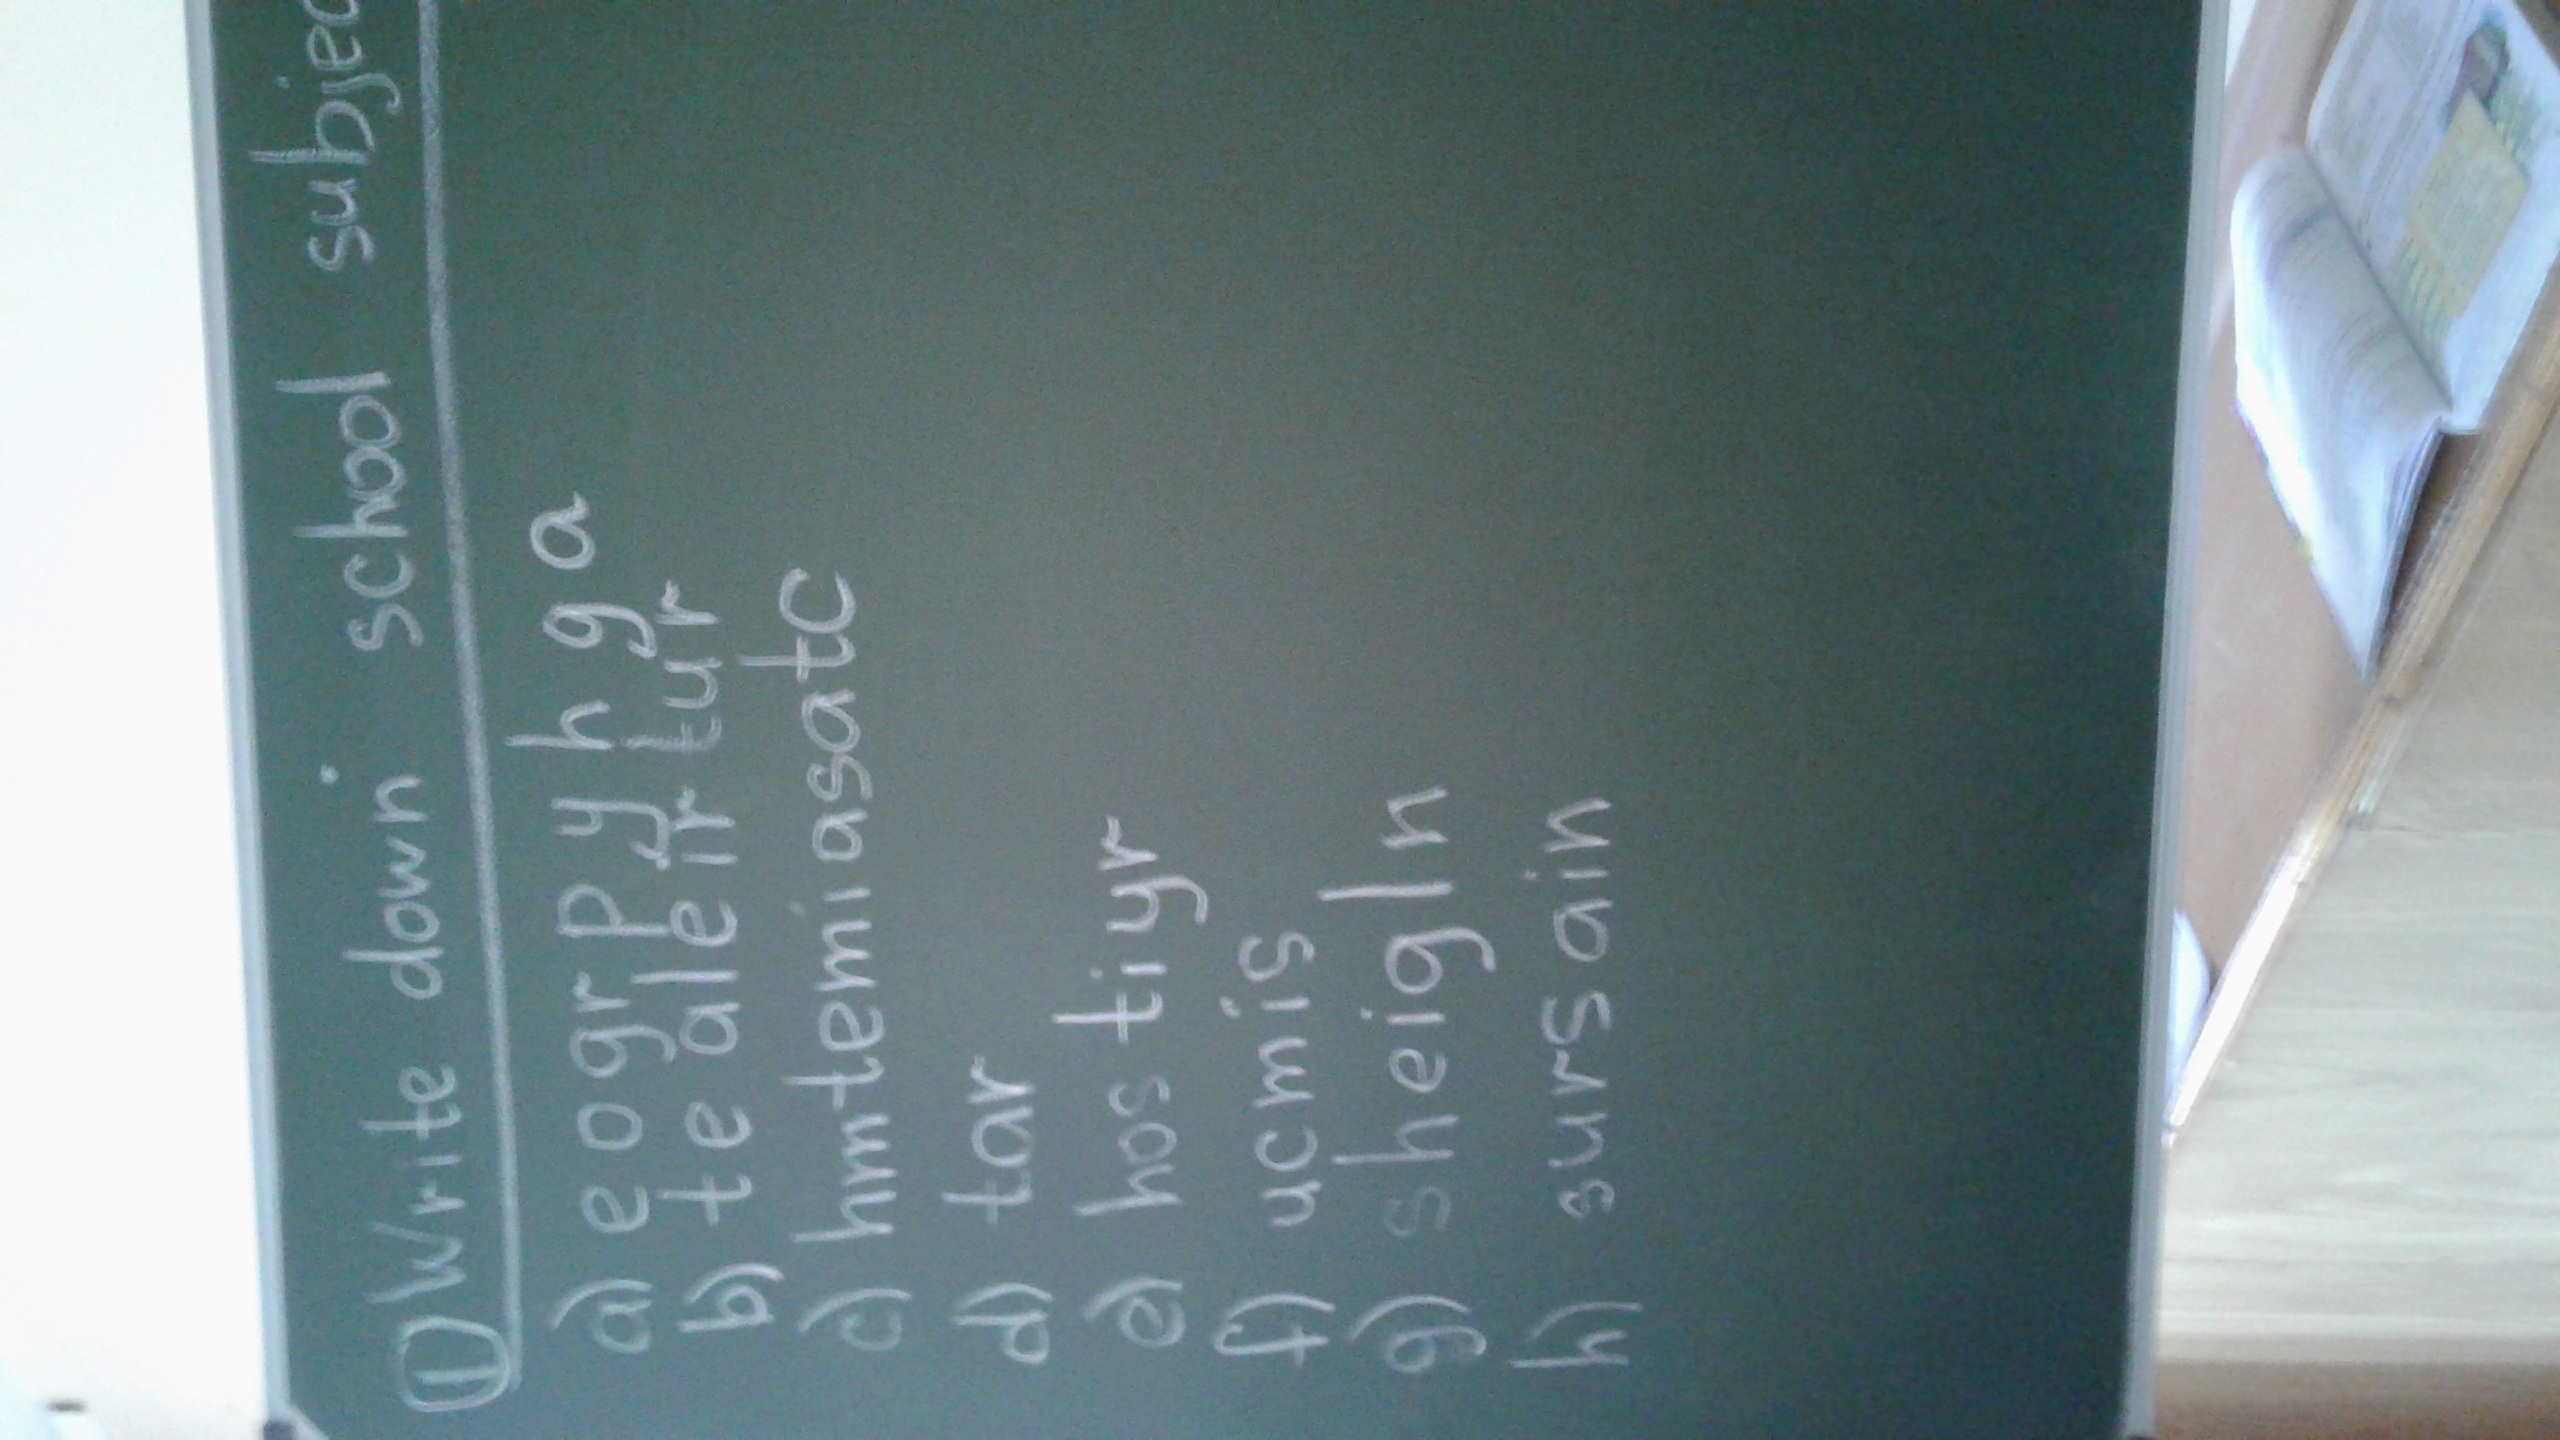 ① Write down school subjec
a) eogrpyhga
b) tealeirtur
c) hmtemiasatc
d) tar
e) hostiyr
f) ucmis
g) sheigln
h) sursain